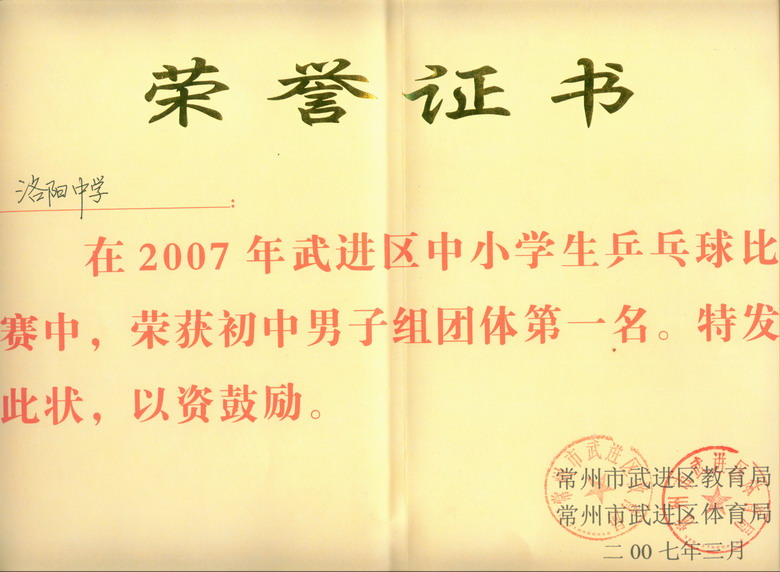 荣誉证书
洛阳中学：
在2007年武进区中小学生乒乓球比
赛中，荣获初中男子组团体第一名。特发
此状，以资鼓励。
常州市武进区教育局
常州市武进区体育局
二00七年三月